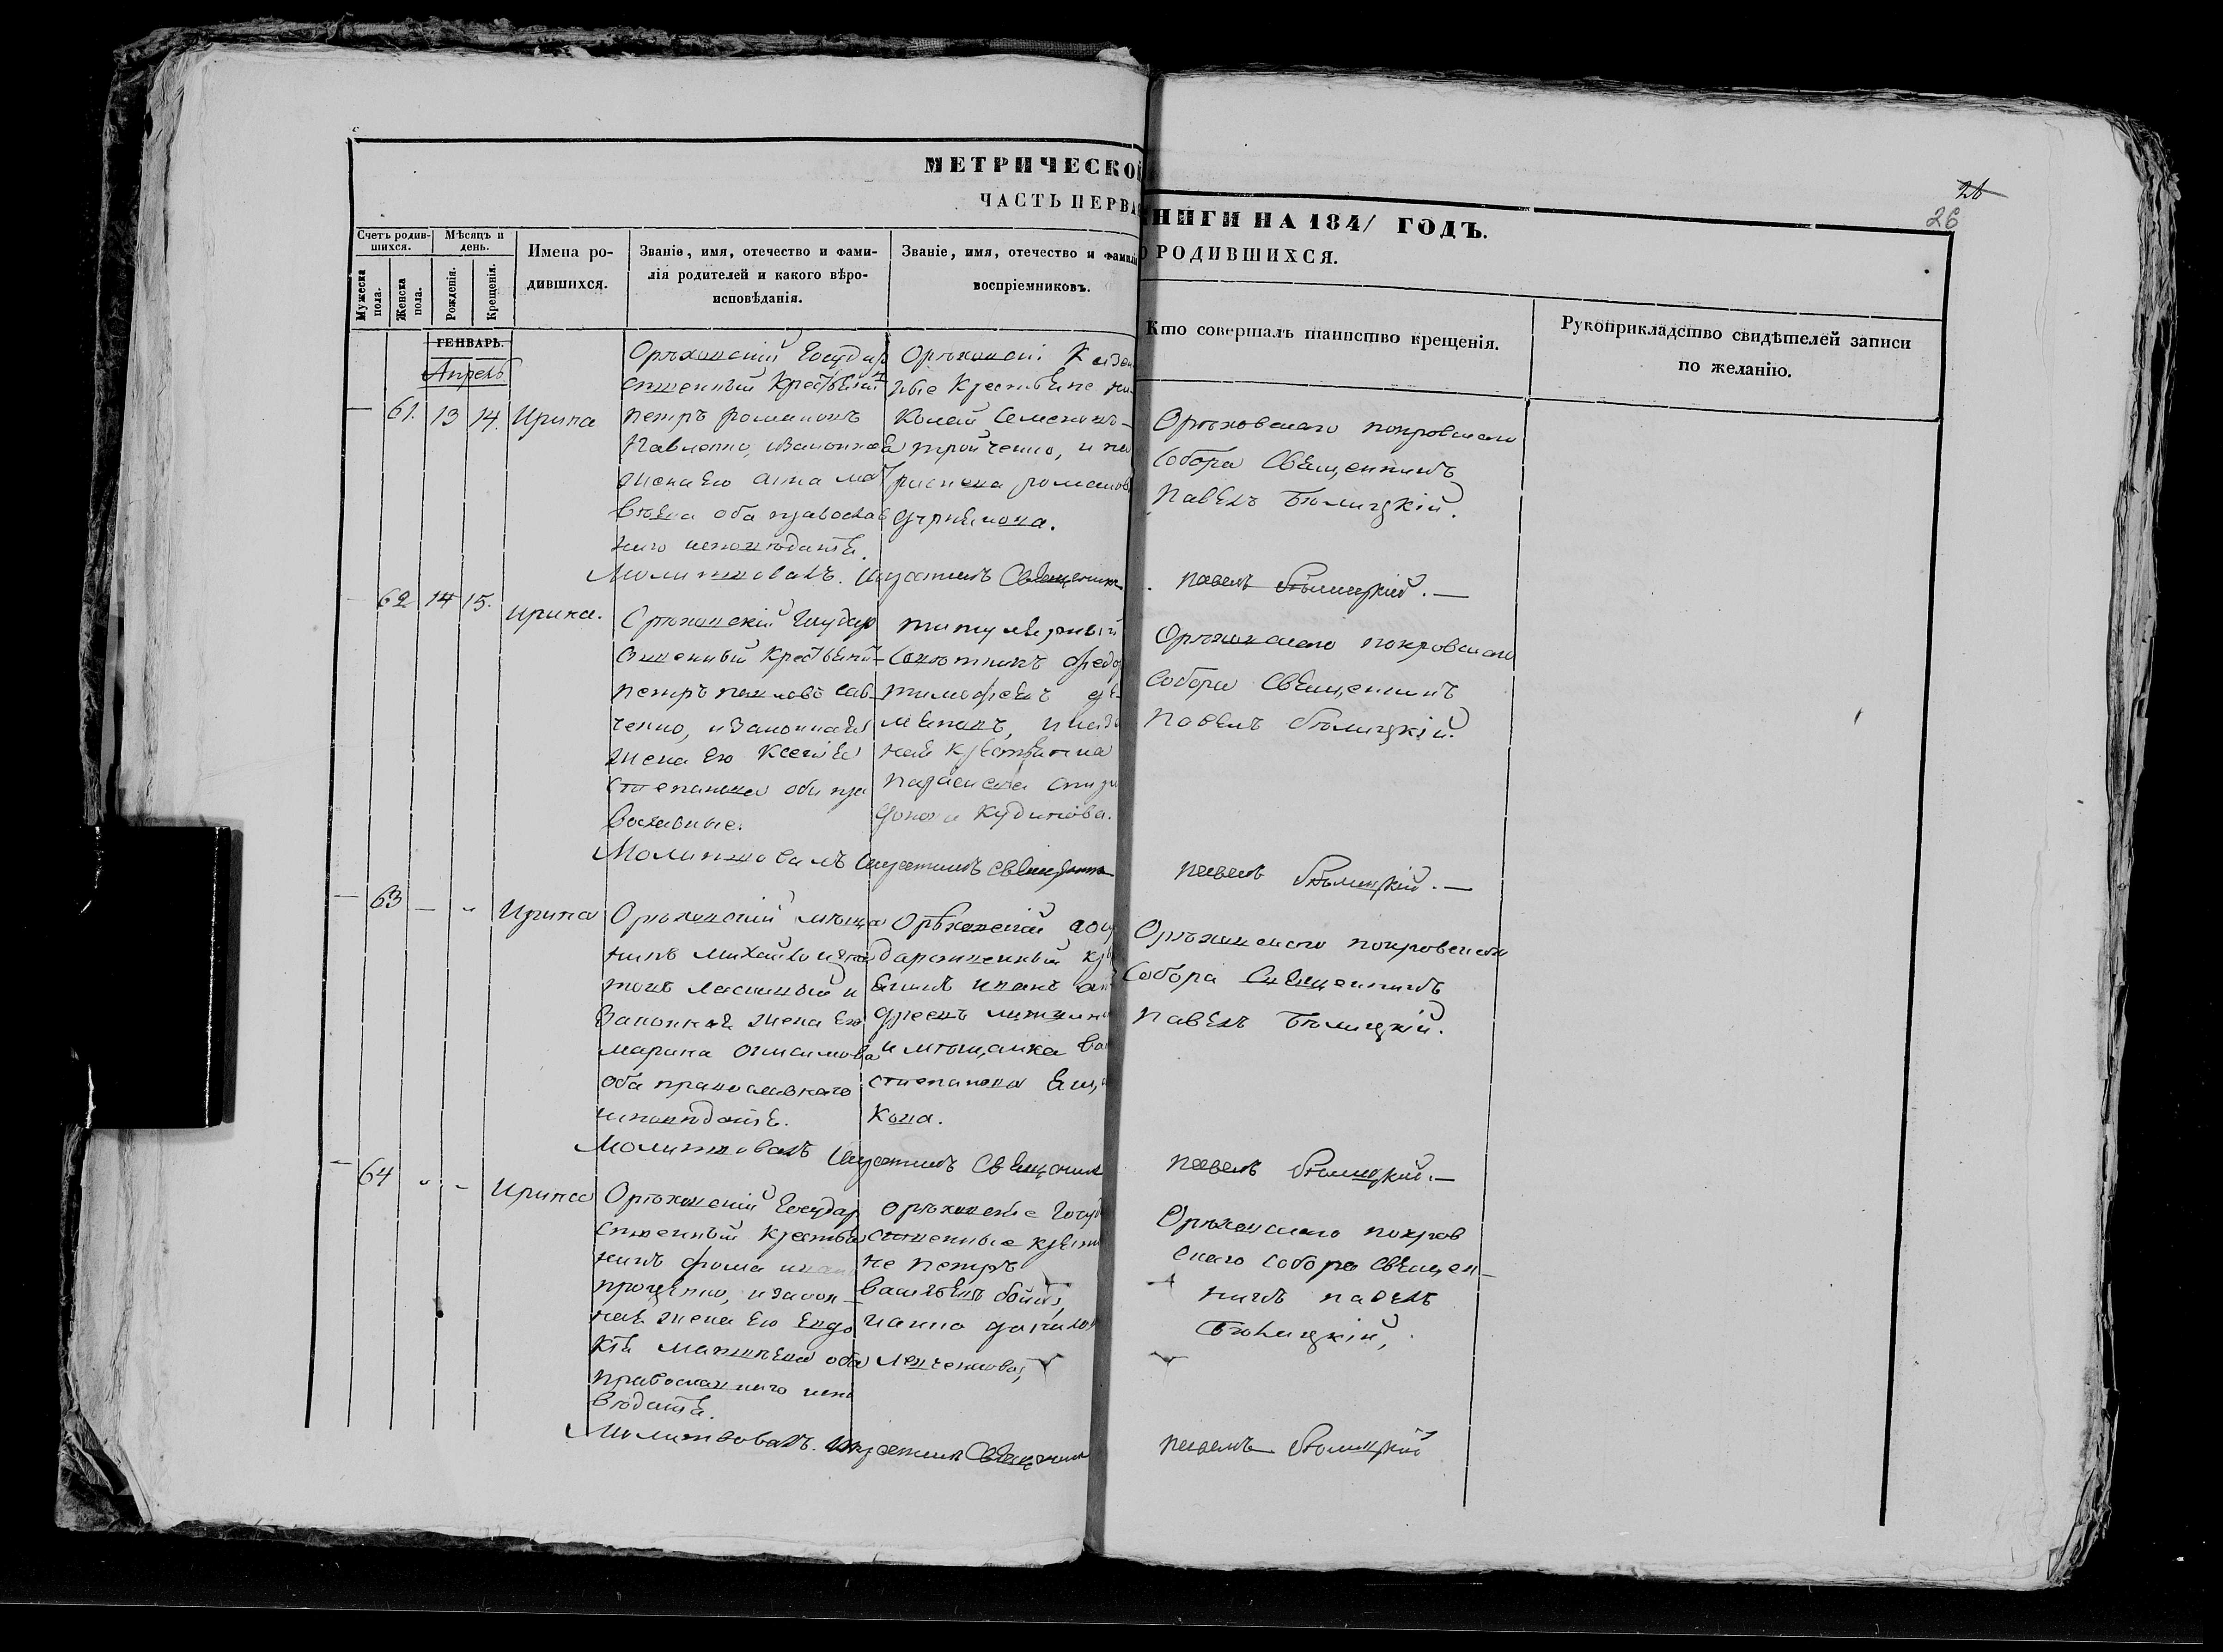 МЕТРИЧЕСКОЙ
ЧАСТЬ ПЕРВА
НИГИ НА 1841 ГОДЪ.
О РОДИВШИХСЯ.
26
26
Счетъ родив-
шихся.
Мужеска
пола.
Женска
пола.
Мѣсяцъ и
день.
Рожденія.
Крещенія.
Имена ро-
дившихся.
Званіе, имя, отечество и фами-
лія родителей и какого вѣро-
исповѣданія.
Званіе, имя, отечество и фамилія
воспріемниковъ.
Кто совершалъ таинство крещенія.
Рукоприкладство свидѣтелей записи
по желанію.
ГЕНВАРЬ.
Апрель
61. 13 14. Ирина
Орѣховскій Государ
ственный Крестьянинъ
петръ романовъ
Павленко, изаконная
жена Его анна мат
вѣева оба православ
наго исповѣданія.
Орѣховскі Казен
ные Крестьяне Ни
колай Семеновъ
тройченко, и па
романов
Орѣховскаго покровскаго
Собора Священникъ
Павелъ Бѣлицкій.
Молитвовалъ. Икрестилъ Священникъ
павелъ бѣлицкій.—
62 14 15. ирина.
Орѣховскій Государ
ственный Крестьянин
петръ павловъ сав
ченко, изаконная
жена Его Ксенія
Степанова оба пра
вославные.
титулярный
Совѣтникъ федор
тимофеевъ
и
ная крестьянка
параскева спири
донова Кудинова.
Орѣховскаго покровскаго
Собора Священникъ
Павелъ бѣлицкій.
Молитвовалъ Икрестилъ священникъ
павелъ бѣлицкій.—
63 — „ Ирина
Орѣховскій мѣща
нинъ Михайло игна
товъ и
Законная жена Его
марина онисимова
оба православнаго
исповѣданія.
Орѣховскій госу
дарственный кр
янинъ иванъ ан
дреевъ литвин
и мѣщанка Ва
степанова Ещ
кова.
Орѣховскаго покровскаго
Собора Священникъ
Павелъ Бѣлицкій.
Молитвовалъ Икрестилъ Священник
павелъ бѣлицкій.—
64 „ „ Ирина
Орѣховскій Государ
ственный Крестья
нинъ фома иван
проценко, изакон
ная жена Его Евдо
кія Матвѣева оба
православнаго испо
вѣданія.
орѣховскіе Госуд
ственные крестья
не петръ
васильевъ бойко,
ианна данилов
левченкова,
Орѣховскаго покров
скаго собора Священ
никъ павелъ
Бѣлицкій,
Молитвовалъ. Икрестилъ Священник
павелъ бѣлицкій